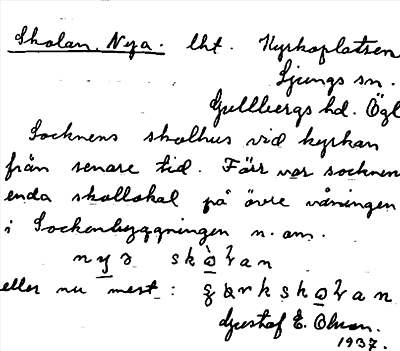 Skolan, Nya. lht. Kyrkoplatsen
Ljungs sn.
Gullbergs hd. Ögl
Socknens skolhus vid kyrkan
från senare tid. Förr var socknen
enda skollokal på övre våningen
i Sockenbyggningen n. om.
nyɜ skò̱ɫan
eller nu mest: ɕærkskoɫan
Gustaf E. Olson.
1937.